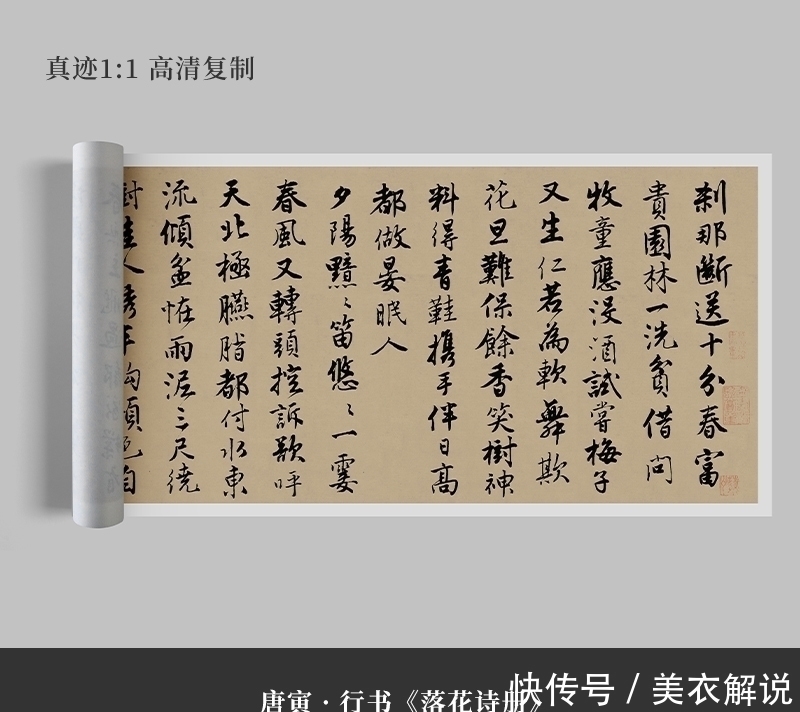 真迹1:1 高清复制
刹那断送十分春富
貴園林一洗貧借问
牧童應没酒試嘗梅子
又生仁若為軟舞欺
花旦難保餘香笑樹神
料得青鞋携手伴日髙
都做晏眠人
夕陽黯〻笛悠〻一霎
春風又轉頭控訴欲呼
天北極臙脂都付水東
流傾盆怪雨泥三尺繞
樹佳人
唐寅·行书《落花诗册》
快传号 / 美衣解说